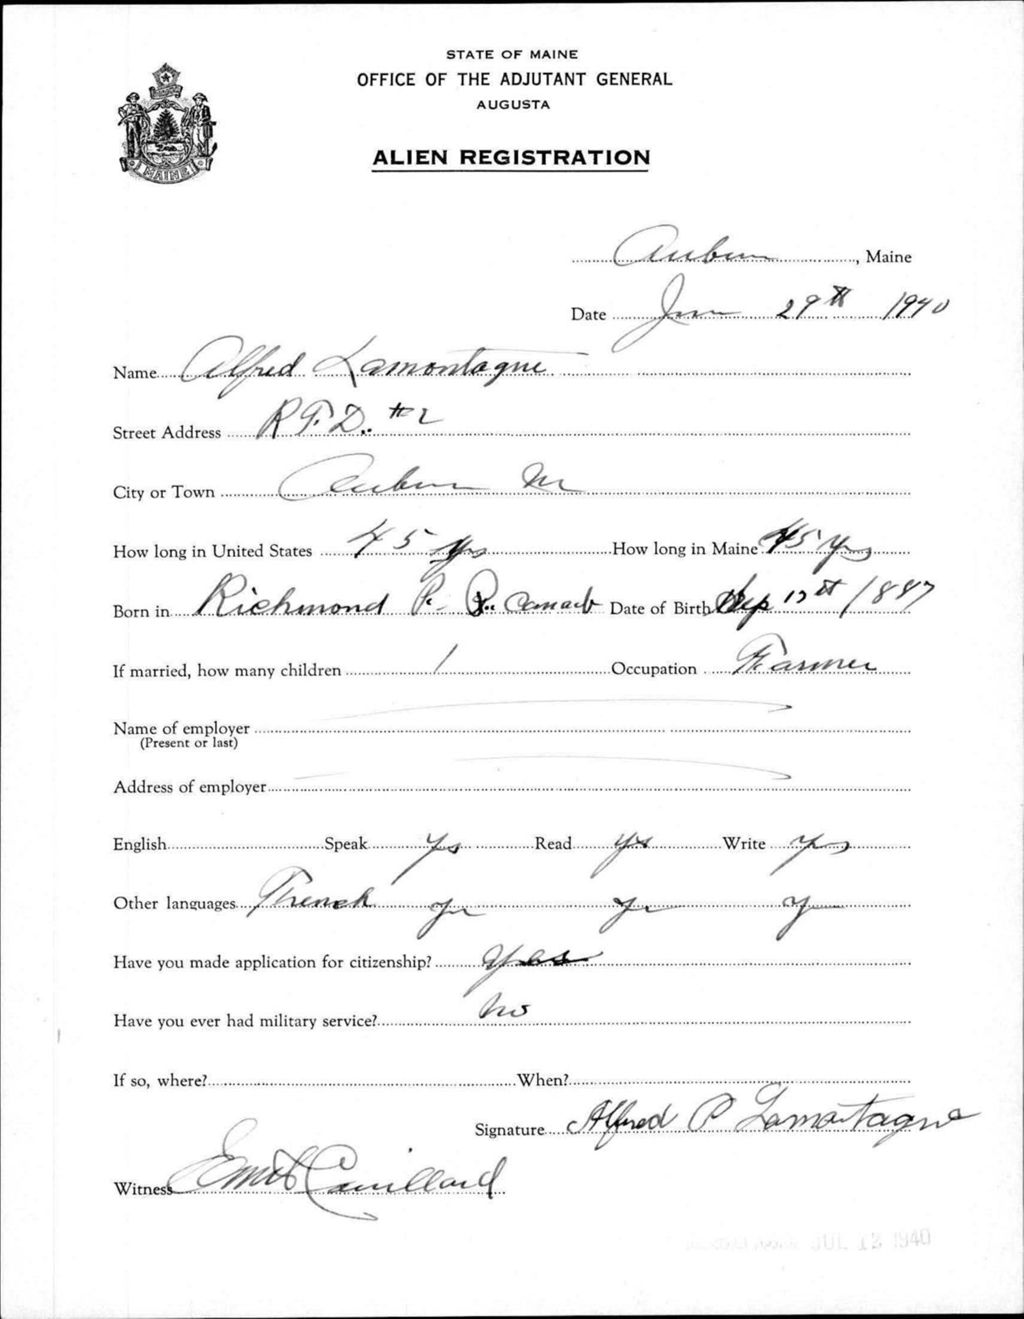 STATE OF MAINE
OFFICE OF THE ADJUTANT GENERAL
AUGUSTA
MAINE
ALIEN REGISTRATION
Auburn, Maine
Date June 29th 1940
Name Alfred Lamontagne
Street Address R.F.D. #2
City or Town Auburn Me
How long in United States 45 yrs How long in Maine 45 yrs
Born in Richmond P. Q. Canada Date of Birth Sep 17th / 1887
If married, how many children 1 Occupation Farmer
Name of employer
(Present or last)
Address of employer
English Speak Yes Read Yes Write Yes
Other languages French Yes Yes Yes
Have you made application for citizenship? Yes
Have you ever had military service? No
If so, where? When?
Signature Alfred P Lamontagne
Witness
JUL 12 1940